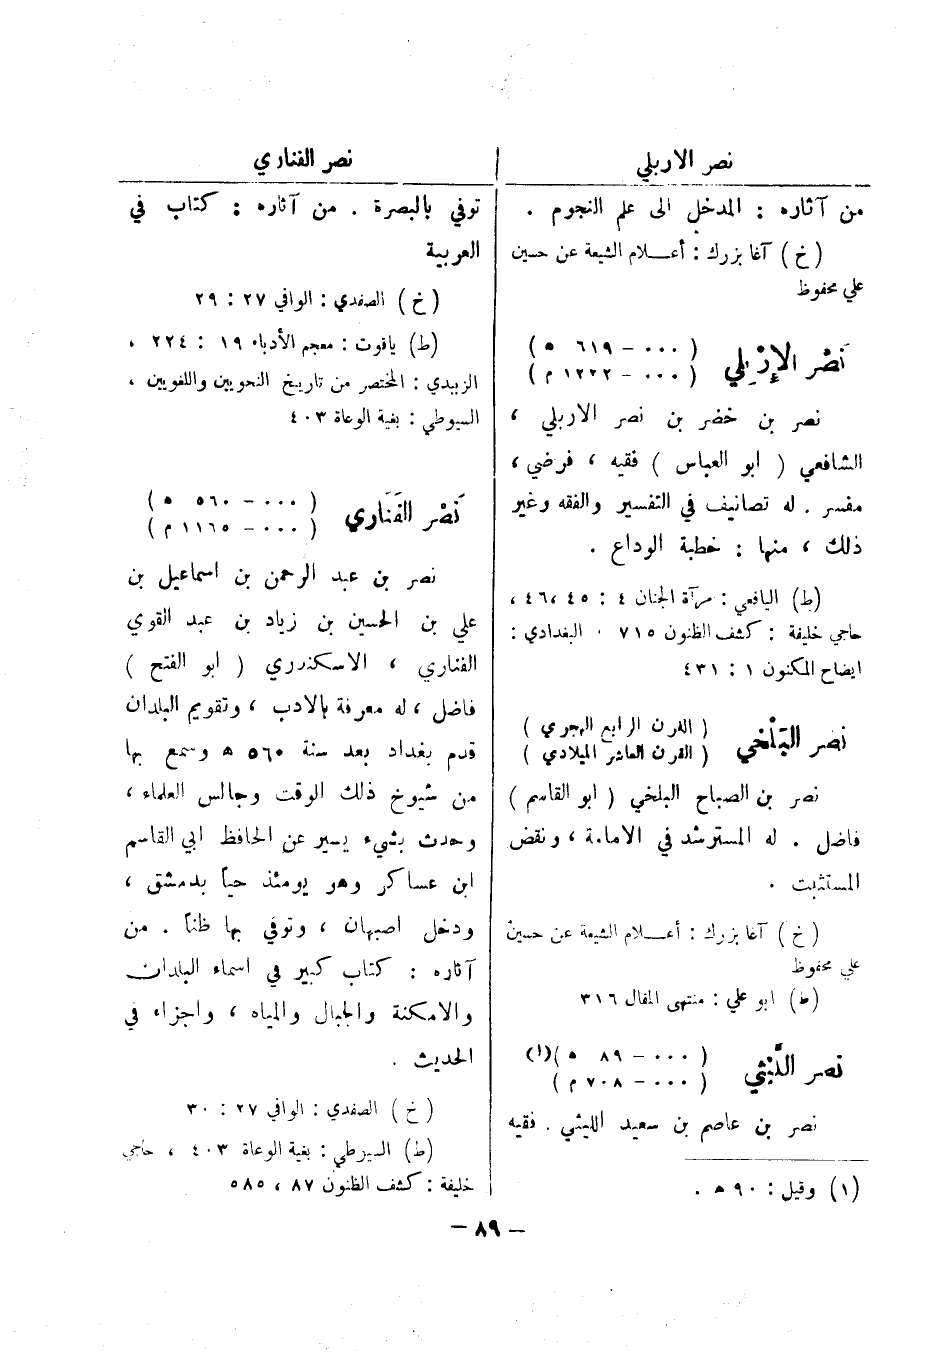 نصر الاربلي
من آثاره : المدخل الى علم النجوم .
( خ ) آغا بزرك : أعـــلام الشيعة عن حسين
علي محفوظ
نَصْر الإِرْبِلي ( ٠٠٠ – ٦١٩ ه )
( ٠٠٠ – ١٢٢٢ م )
نصر بن خضر بن نصر الاربلي ،
الشافعي ( ابو العباس ) فقيه ، فرضي ،
مفسر . له تصانيف في التفسير والفقه وغير
ذلك ، منها : خطبة الوداع .
( ط ) اليافعي : مرآة الجنان ٤ : ٤٥ ،٤٦ ،
حاجي خليفة : كشف الظنون ٧١٥ . البغدادي :
ايضاح المكنون ١ : ٤٣١
نصر البَلْخي ( القرن الرابع الهجري )
( القرن العاشر الميلادي )
نصر بن الصباح البلخي ( ابو القاسم )
فاضل . له المسترشد في الامامة ، ونقض
المستثبت .
( خ ) آغا بزرك : أعـــلام الشيعة عن حسين
علي محفوظ
( ط ) ابو علي : منتهى المقال ٣١٦
نصر اللَّيْثي ( ٠٠٠ – ٨٩ ه )(١)
( ٠٠٠ – ٧٠٨ م )
نصر بن عاصم بن سعيد الليثي . فقيه
(١) وقيل : ٩٠ ه .
نصر الفناري
توفي بالبصرة . من آثاره : كتاب في
العربية
( خ ) الصفدي : الوافي ٢٧ : ٢٩
( ط ) ياقوت : معجم الأدباء ١٩ : ٢٢٤ ،
الزبيدي : المختصر من تاريخ النحويين واللغويين ،
السيوطي : بغية الوعاة ٤٠٣
نَصْر الفَنَاري ( ٠٠٠ – ٥٦٠ ه )
( ٠٠٠ – ١١٦٥ م )
نصر بن عبد الرحمن بن اسماعيل بن
علي بن الحسين بن زياد بن عبد القوي
الفناري ، الاسكندري ( ابو الفتح )
فاضل ، له معرفة بالادب ، وتقويم البلدان
قدم بغداد بعد سنة ٥٦٠ ه وسمع بها
من شيوخ ذلك الوقت وجالس العلماء ،
وحدث بشيء يسير عن الحافظ ابي القاسم
ابن عساكر وهو يومئذ حياً بدمشق ،
ودخل اصبهان ، وتوفي بها ظناً . من
آثاره : كتاب كبير في اسماء البلدان
والامكنة والجبال والمياه ، واجزاء في
الحديث .
( خ ) الصفدي : الوافي ٢٧ : ٣٠
( ط ) السيرطي : بغية الوعاة ٤٠٣ ، حاجي
خليفة : كشف الظنون ٨٧ ، ٥٨٥
– ٨٩ –